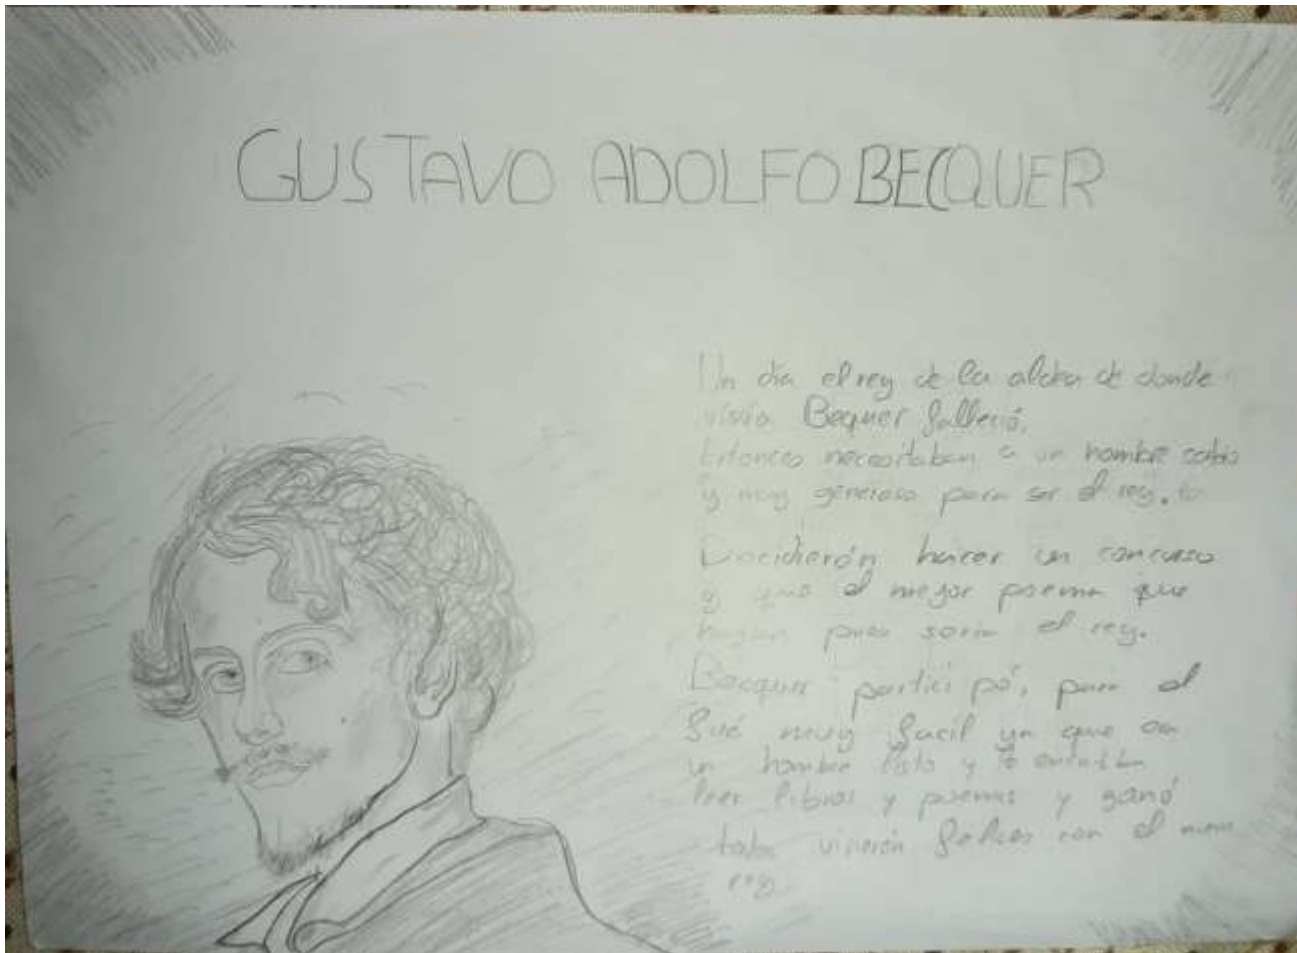 GUSTAVO ADOLFO BECQUER
Un día el rey de la aldea de donde
vivia Bequer falleció.
Entonces necesitaban a un hombre sabio
y muy generoso para ser el rey.
Decidierón hacer un concurso
y que el mejor poema que
hagan pues seria el rey.
Becquer participó, para el
fué muy facil ya que era
un hombre listo y le
leer libros y poemas y ganó
todos vivierón felices con el nuevo
rey